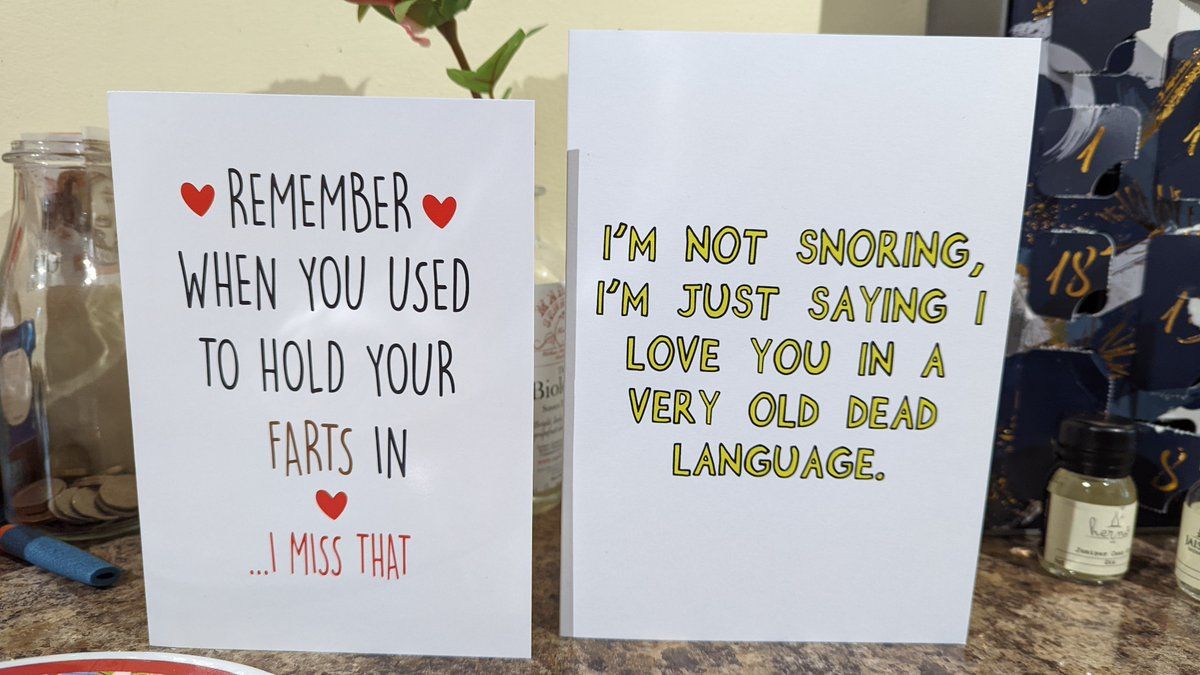 REMEMBER
WHEN YOU USED
TO HOLD YOUR
FARTS IN
...I MISS THAT
I'M NOT SNORING,
I'M JUST SAYING I
LOVE YOU IN A
VERY OLD DEAD
LANGUAGE.
1
18
8